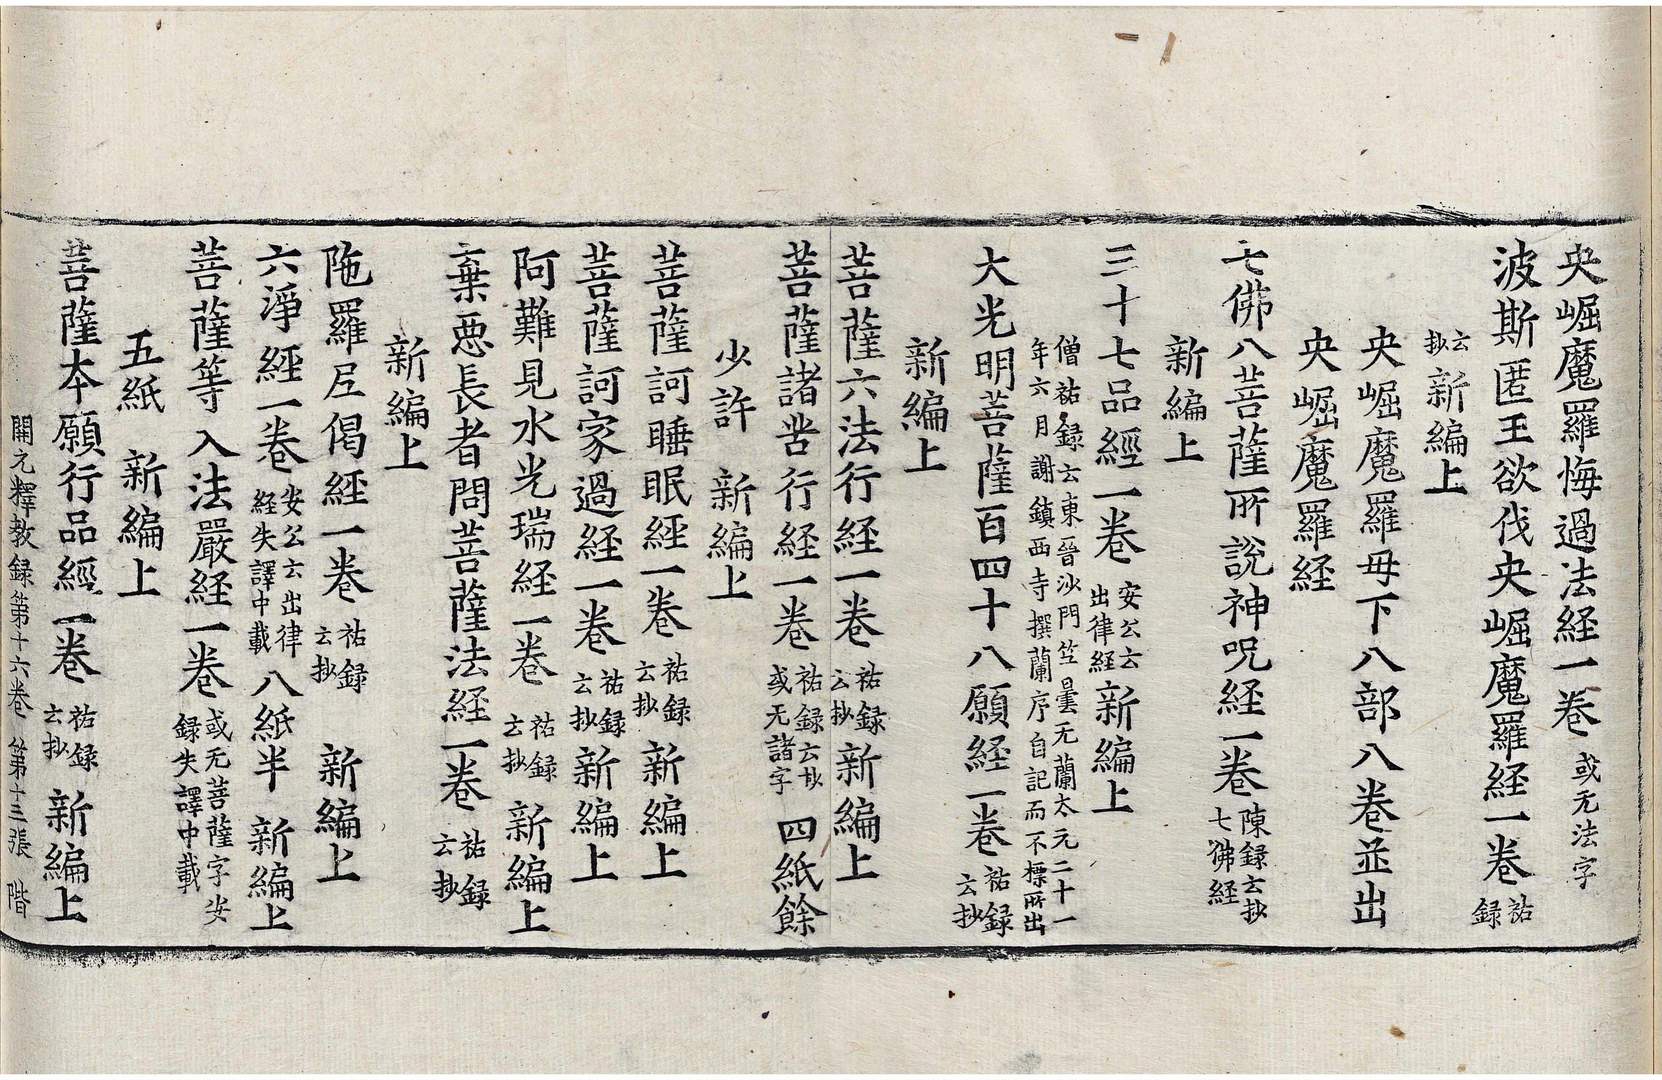 央崛魔羅悔過法経一卷 或无法字
波斯匿王欲伐央崛魔羅経一卷 祐録
云抄 新編上
央崛魔羅母下八部八卷並出
央崛魔羅経
七佛八菩薩所說神呪経一卷 陳録云抄七佛経
新編上
三十七品經一卷 安公云出律経 新編上
僧祐録云東晉沙門竺曇无蘭太元二十一
年六月謝鎮西寺撰蘭序自記而不標所出
大光明菩薩百四十八願経一卷 祐録云抄
新編上
菩薩六法行経一卷 祐録云抄 新編上
菩薩諸苦行経一卷 祐録云抄或无諸字 四紙餘
少許 新編上
菩薩訶睡眠經一卷 祐録云抄 新編上
菩薩訶家過経一卷 祐録云抄 新編上
阿難見水光瑞経一卷 祐録云抄 新編上
棄惡長者問菩薩法経一卷 祐録云抄
新編上
陁羅尼偈經一卷 祐録云抄 新編上
六淨經一卷 安公云出律経失譯中載 八紙半 新編上
菩薩等入法嚴経一卷 或无菩薩字安録失譯中載
五紙 新編上
菩薩本願行品經一卷 祐録云抄 新編上
開元釋教録第十六卷 第十三張 階